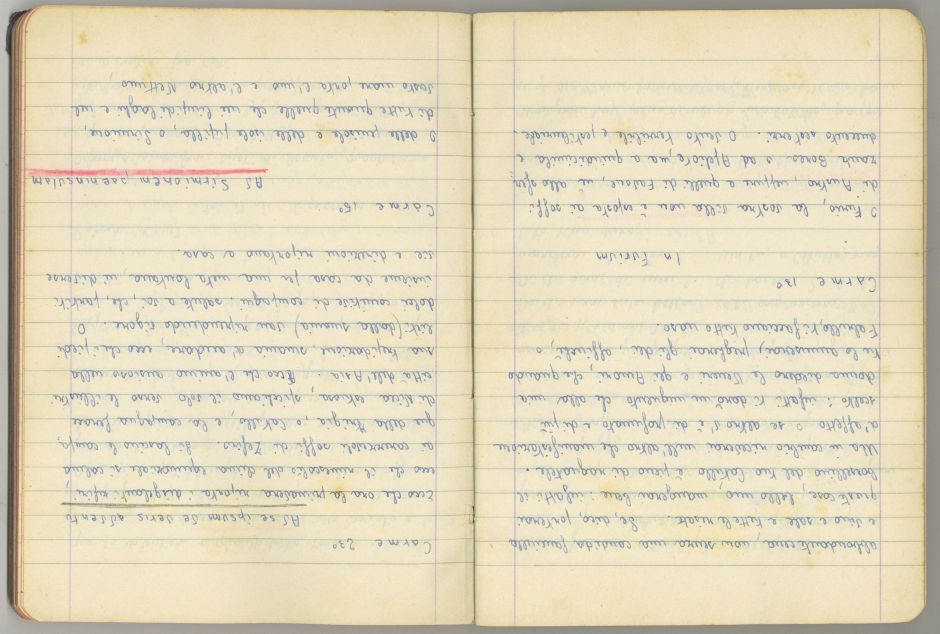 abbondante cena, non senza una candida fanciulla
e vino e sale e tutte le risate. Se, dico, porterai
queste cose, bello mio, mangerai bene: infatti il
borsellino del tuo Catullo è pieno di ragnatele.
Ma in cambio riceverai nell'altro che manifestazioni
d'affetto o se altro v'è di profumato e di più
scelto: infatti ti darò un unguento che alla mia
donna diedero le Veneri e gli Amori, che quando
tu lo annuserai, pregherai gli dei, affinché, o
Fabullo, ti facciano tutto naso
Carme 13°
In Furium
O Furio, la vostra villa non è esposta ai soffi
di Austro, neppure a quelli di Favone, nè allo sfer-
zante Borea o ad Apeliote, ma a quindicimila e
duecento sesterzi. O vento terribile e pestilenziale.
Carme 23°
Ad se ipsum de veris adventu
Ecco che ora la primavera riporta i disgelanti tepori,
ecco che il rimescolio del clima equinoziale si calma
a carezzevoli soffi di Zefiro. Si lascino le campa-
gne della Frigia, o Catullo, e la campagna ferace
di Nicea estuosa; voliamo il volo verso le illustri
città dell'Asia. Ecco che l'animo ansioso nella
sua trepidazione, smania d'andare, ecco che i piedi
lieti (dalla smania) van riprendendo vigore. O
dolci comitive di compagni; salute a voi, che, partiti
insieme da casa per una meta lontana, in diverse
vie e direzioni riportano a casa.
Carme 15°
Ad Sirmionem paeninsulam
O delle penisole e delle isole pupilla, o Sirmione,
di tutte quante quelle che nei limpidi laghi e sul
vasto mare porta l'uno e l'altro Nettuno,